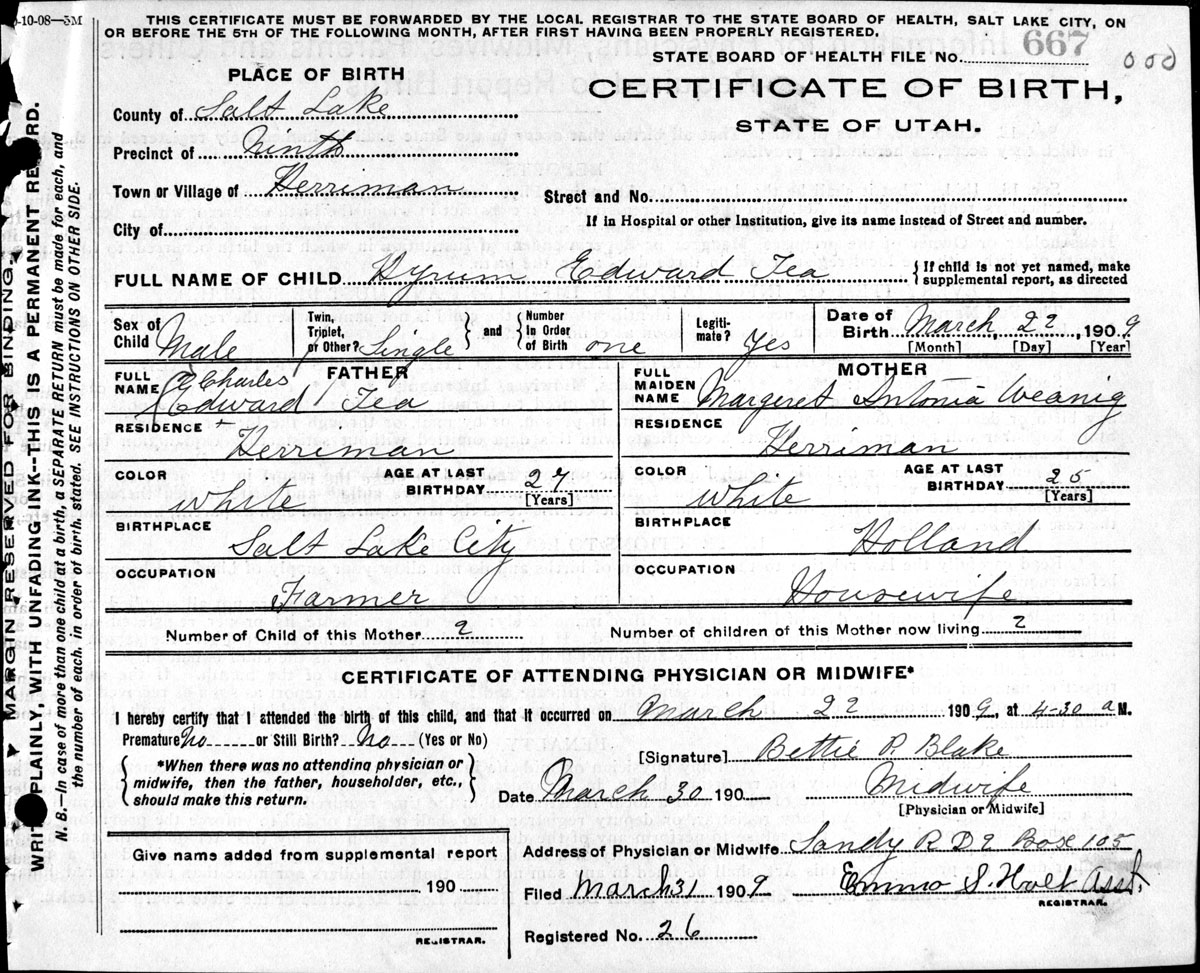 -10-08—3M
THIS CERTIFICATE MUST BE FORWARDED BY THE LOCAL REGISTRAR TO THE STATE BOARD OF HEALTH, SALT LAKE CITY, ON
OR BEFORE THE 5TH OF THE FOLLOWING MONTH, AFTER FIRST HAVING BEEN PROPERLY REGISTERED.
STATE BOARD OF HEALTH FILE No. 667
000
PLACE OF BIRTH
CERTIFICATE OF BIRTH,
STATE OF UTAH.
County of Salt Lake
Precinct of Ninth
Town or Village of Herriman
Street and No.
City of
If in Hospital or other Institution, give its name instead of Street and number.
FULL NAME OF CHILD Hyrum Edward Tea
{If child is not yet named, make
supplemental report, as directed
Sex of
Child Male
Twin,
Triplet,
or Other? Single
and
Number
in Order
of Birth one
Legiti-
mate? Yes
Date of
Birth March 22 1909
[Month] [Day] [Year]
FATHER
FULL
NAME Charles
Edward Tea
RESIDENCE
Herriman
COLOR
White
AGE AT LAST
BIRTHDAY 27
[Years]
BIRTHPLACE
Salt Lake City
OCCUPATION
Farmer
MOTHER
FULL
MAIDEN
NAME Margeret Antonia Weanig
RESIDENCE
Herriman
COLOR
White
AGE AT LAST
BIRTHDAY 25
[Years]
BIRTHPLACE
Holland
OCCUPATION
Housewife
Number of Child of this Mother 2
Number of children of this Mother now living 2
CERTIFICATE OF ATTENDING PHYSICIAN OR MIDWIFE*
I hereby certify that I attended the birth of this child, and that it occurred on March 22 1909, at 4-30 a M.
Premature No or Still Birth? No (Yes or No)
*When there was no attending physician or
midwife, then the father, householder, etc.,
should make this return.
[Signature] Bettie P. Blake
Date March 30 190 Midwife
[Physician or Midwife]
Give name added from supplemental report
190
REGISTRAR.
Address of Physician or Midwife Sandy R D 2 Box 105
Filed March 31 1909 Emma S. Holt Asst.
REGISTRAR.
Registered No. 26
MARGIN RESERVED FOR BINDING.
WRITE PLAINLY, WITH UNFADING INK--THIS IS A PERMANENT RECORD.
N. B.—In case of more than one child at a birth, a SEPARATE RETURN must be made for each, and
the number of each, in order of birth, stated. SEE INSTRUCTIONS ON OTHER SIDE.